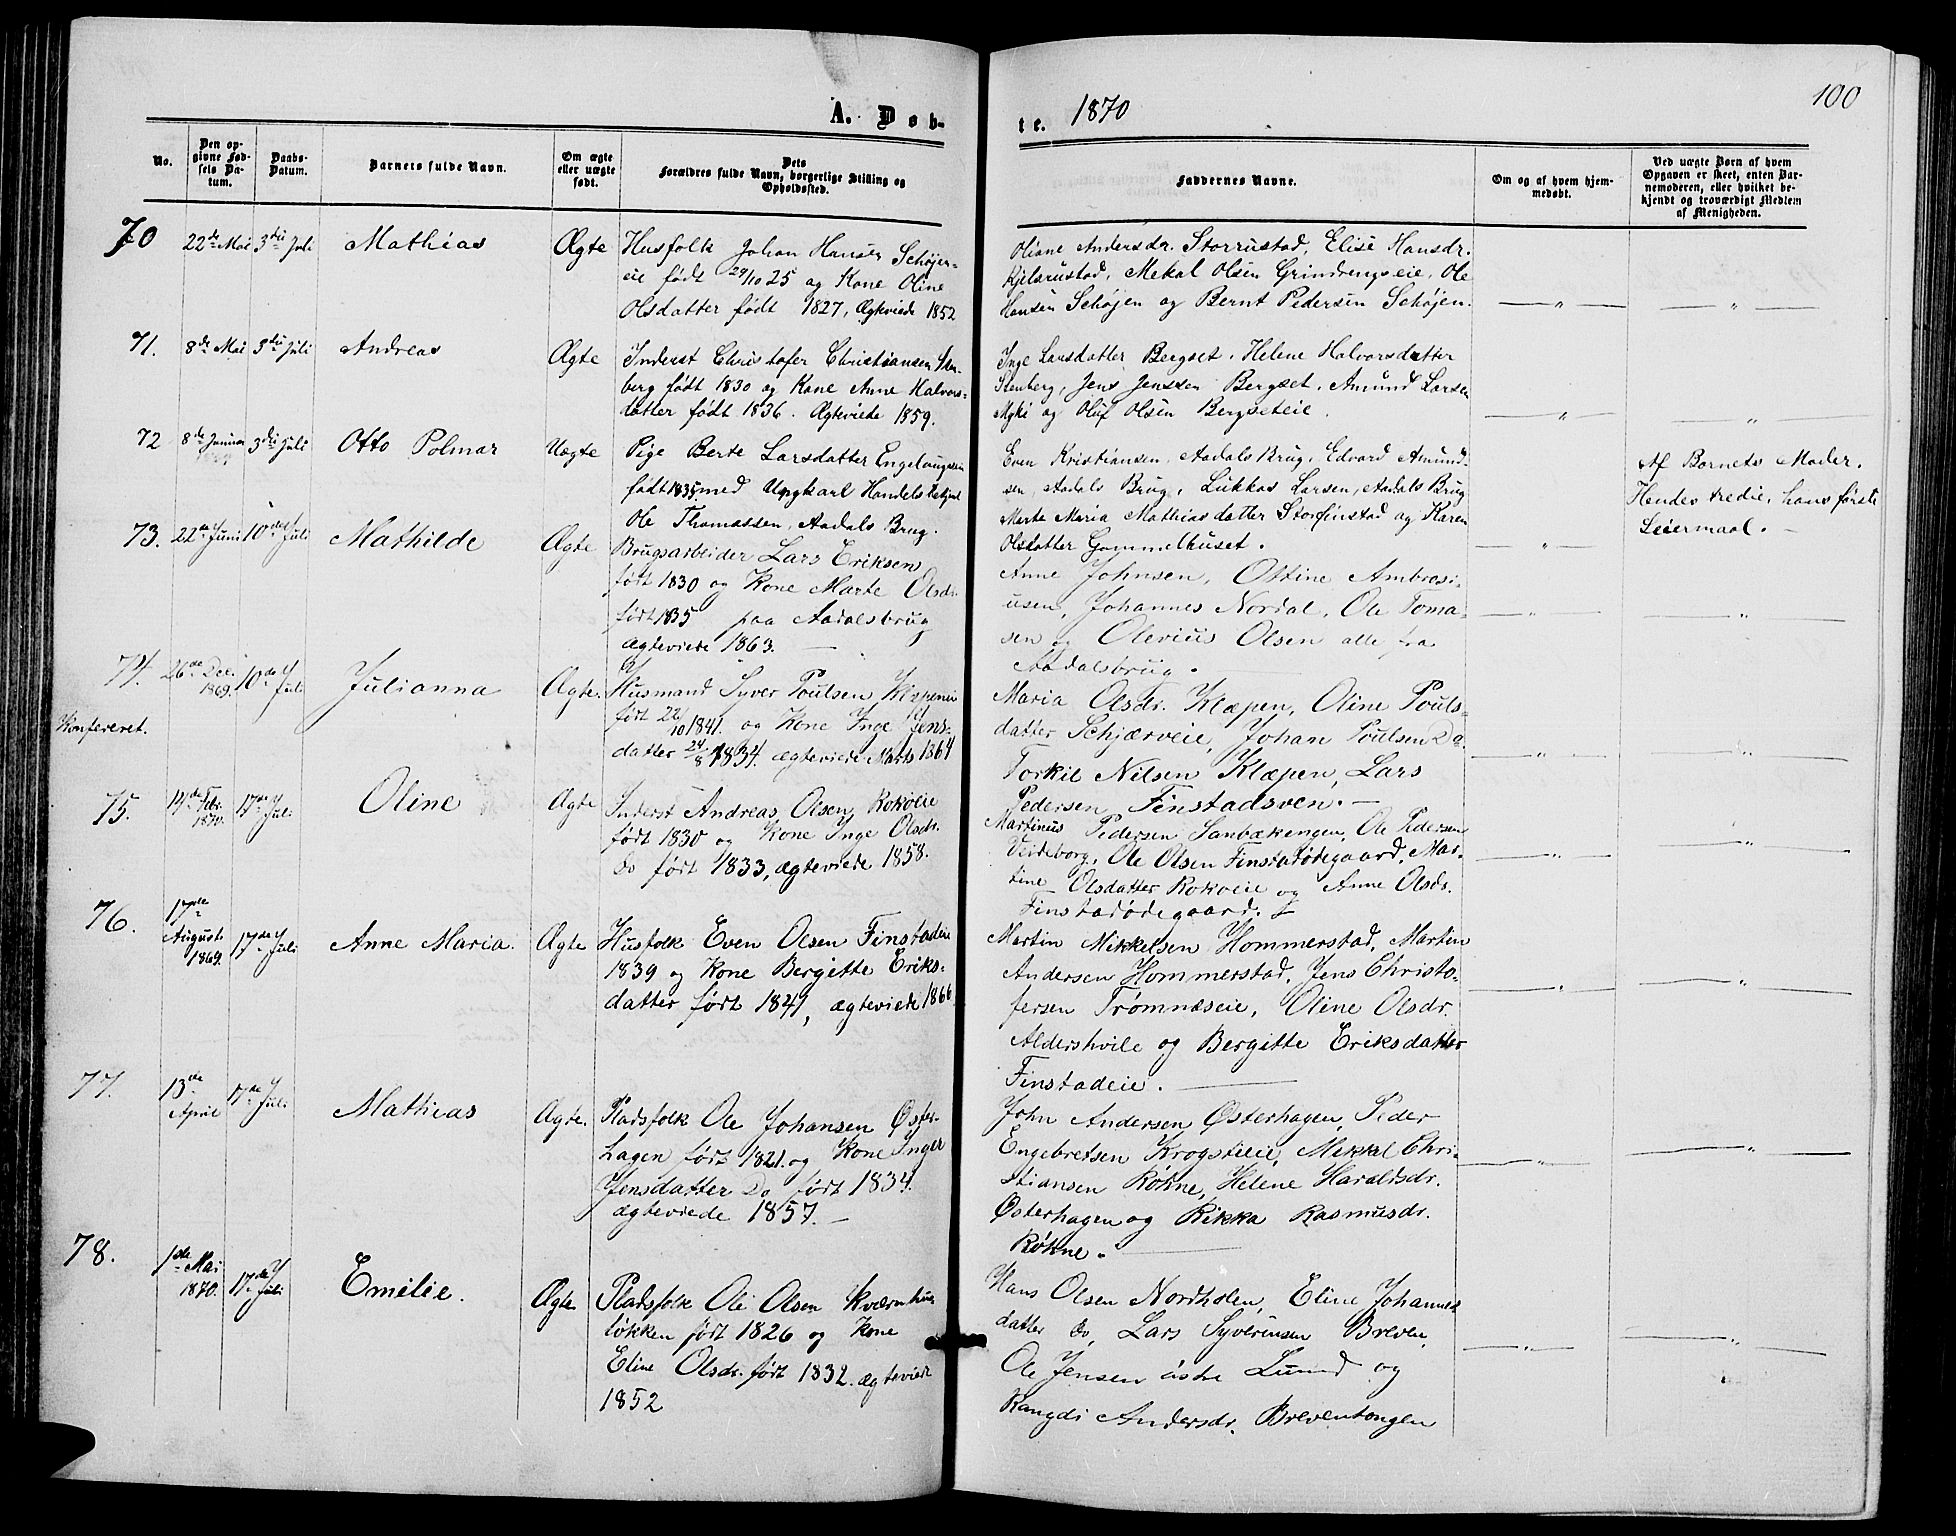 100
A. Døb-
te. 1870
No.
Den op-
givne Fød-
sels Da-
tum.
Daabs-
Datum.
Barnets fulde Navn.
Om ægte
eller uægte
født.
Dets
Forældres fulde Navn, borgerlige Stilling og
Opholdssted.
Faddernes Navne.
Om og af hvem hjem-
medøbt.
Ved uægte Børn af hvem
Opgaven er skeet, enten Bar-
nemoderen, eller hvilket be-
kjendt og troværdigt Medlem
af Menigheden.
70 22de Mai 3die Juli Mathias Ægte
Husfolk Johan Hansen Schøjen-
eie født 29/10 25 og Kone Oline
Olsdatter født 1827, Ægteviede 1852
Oliane Andersdr. Storrustad, Elise Hansdr.
Kjelsrustad, Mekal Olsen Grindengseie, Ole
Hansen Schøjen og Bernt Pedersen Schøjen.
71. 8de Mai 3die Juli Andreas Ægte
Inderst Christofer Christiansen Sten-
berg født 1830 og Kone Anne Halvors-
datter født 1836. Ægteviede 1859.
Inge Larsdatter Bergset, Helene Halvorsdatter
Stenberg, Jens Jenssen Bergset, Amund Larsen
Myki og Oluf Olsen Bergseteie.
72 8de Januar 3die Juli Otto Polmar Uægte
Pige Berte Larsdatter Engelaugsen
født 1835 med Ungkarl Handelsbetjent
Ole Thomassen, Aadals Brug.
Even Kristiansen, Aadals Brug, Edvard Amund-
sen, Aadals Brug, Lukkas Larsen, Aadals Brug
Marte Maria Mathiasdatter Storfinstad og Karen
Olsdatter Gammelhuset.
Af Barnets Moder.
Hendes tredie, hans første
Leiermaal.
73. 22de Juni 10de Juli Mathilde Ægte
Brugsarbeider Lars Eriksen
født 1830 og Kone Marte Olsdr.
født 1835 paa Aadalsbrug
ægteviede 1863.
Anne Johnsen, Ottine Ambrosi-
usen, Johannes Nordal, Ole Toma-
sen og Olerius Olsen alle fra
Aadalsbrug.
74. 26de Dec. 1869. 10de Juli Julianna Ægte.
Konfereret.
Husmand Syver Poulsen Klæpeneie
født 22/10 1841. og Kone Inge Jens-
datter 24/8 1834. ægteviede Marts 1864
Maria Olsdr. Klæpen, Oline Pouls-
datter Schjærveie, Johan Poulsen Do.
Torkil Nilsen Klæpen, Lars
Pedersen Finstadsven.
75. 14de Febr. 1870. 17de Juli Oline Ægte
Inderst Andreas Olsen Rokoeie
født 1830 og Kone Inge Olsdr.
Do født 1833, ægteviede 1858.
Martinus Pedersen Sanbækengen, Ole Pedersen
Veideborg, Ole Olsen Finstadødegaard, Mar-
tine Olsdatter Rokoeie og Anne Olsdr.
Finstadødegaard.
76. 17de August 1869. 17de Juli Anne Maria. Ægte
Husfolk Even Olsen Finstadeie
1839 og Kone Bergitte Eriks-
datter født 1841, ægteviede 1866
Martin Mikkelsen Hommerstad, Martin
Andersen Hommerstad, Jens Christo-
fersen Trømnæseie, Oline Olsdr.
Aldershvile og Bergitte Eriksdatter
Finstadeie.
77. 13de April 17de Juli Mathias Ægte.
Pladsfolk Ole Johansen Øster-
hagen født 1821. og Kone Inger
Jensdatter Do født 1834.
ægteviede 1857.
John Andersen Østerhagen, Peder
Engebretsen Krogsteie, Mikkel Chri-
stiansen Røhne, Helene Haraldsdr.
Østerhagen og Rikka Rasmusdr.
Røhne.
78. 1ste Mai 1870. 17de Juli Emilie. Ægte
Pladsfolk Ole Olsen Kværnhus-
løkken født 1826 og Kone
Eline Olsdr. født 1832. ægteviede
1852
Hans Olsen Nordholen, Eline Johannes-
datter Do, Lars Syverinsen Breven,
Ole Jensen østre Lund og
Rangdi Andersdr. Breventongen